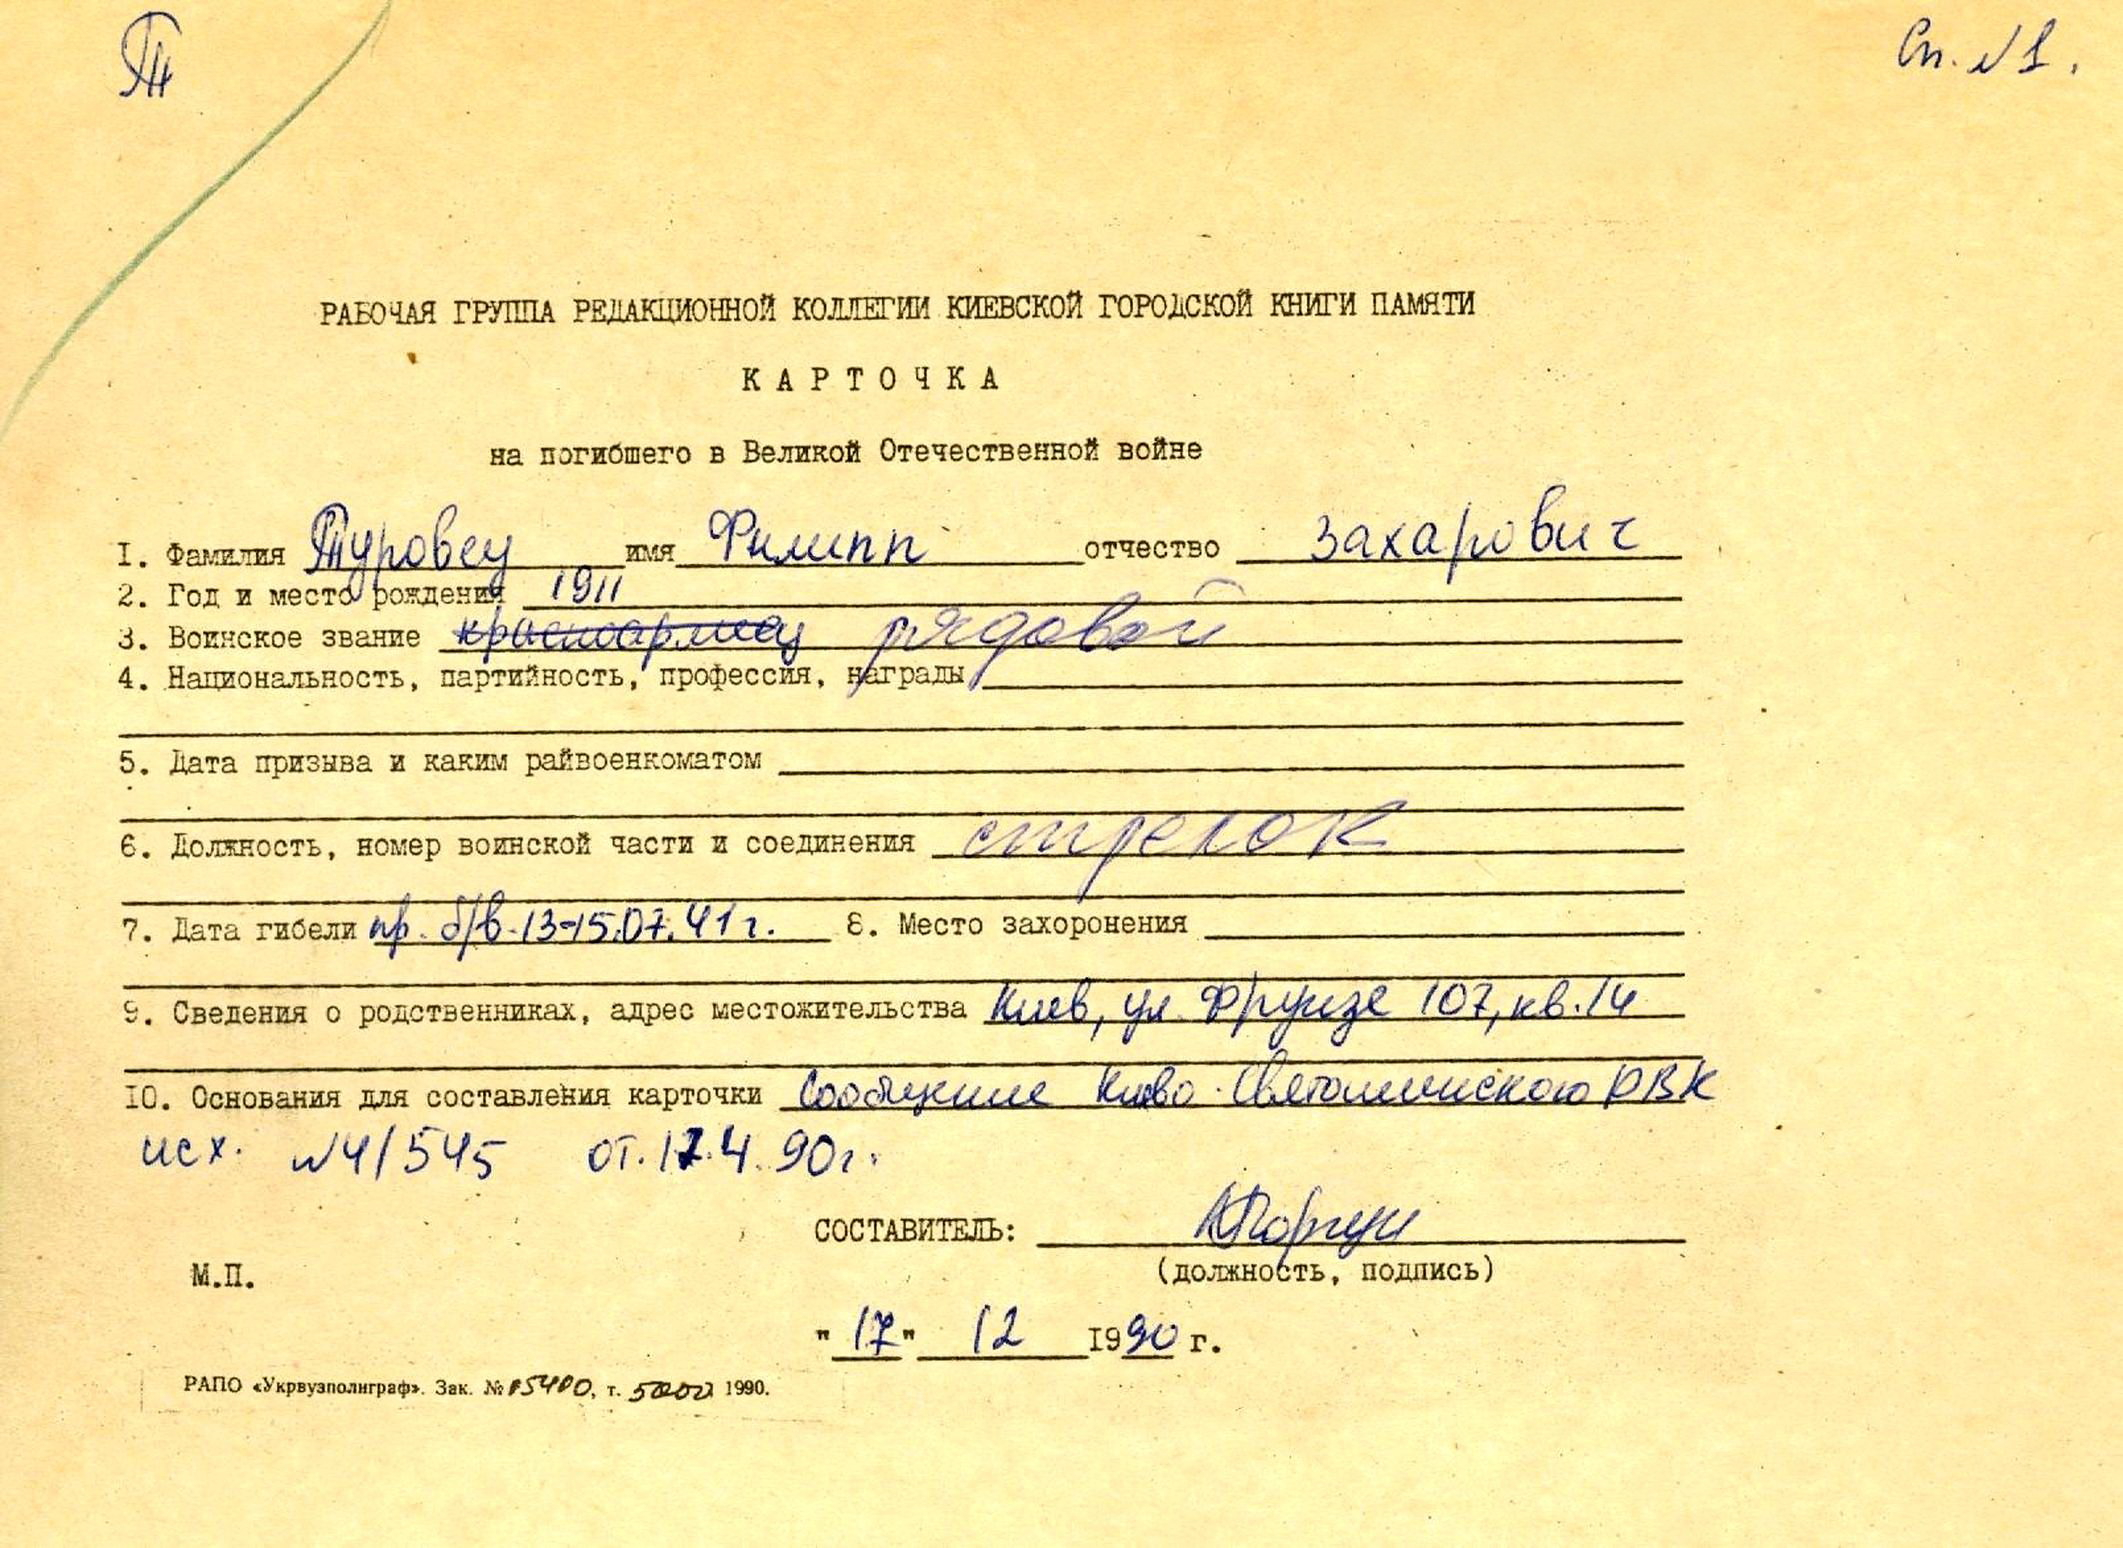 Т
Сп. №1.
РАБОЧАЯ ГРУППА РЕДАКЦИОННОЙ КОЛЛЕГИИ КИЕВСКОЙ ГОРОДСКОЙ КНИГИ ПАМЯТИ
КАРТОЧКА
на погибшего в Великой Отечественной войне
1. Фамилия Туровец имя Филипп отчество Захарович
2. Год и место рождения 1911
3. Воинское звание красноармеец рядовой
4. Национальность, партийность, профессия, награды
5. Дата призыва и каким райвоенкоматом
6. Должность, номер воинской части и соединения стрелок
7. Дата гибели пр. б/в. 13-15.07.41г. 8. Место захоронения
9. Сведения о родственниках, адрес местожительства Киев, ул. Фрунзе 107, кв. 14
10. Основания для составления карточки Сообщение Киево-Святошинского РВК
исх. №4/545 от. 17.4.90г.
СОСТАВИТЕЛЬ:
М.П. (должность, подпись)
"17" 12 1990 г.
РАПО «Укрвузполиграф». Зак. № 05400, т. 5000 1990.